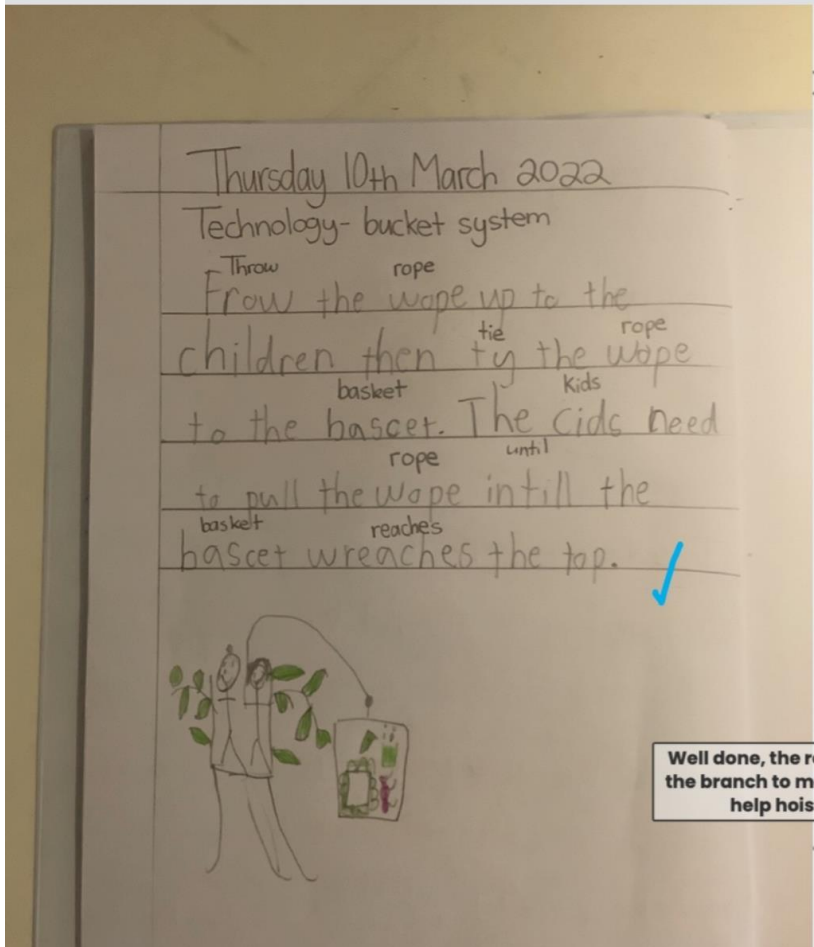 Thursday 10th March 2022
Technology- bucket system
Throw rope
Frow the wope up to the
tie rope
children then ty the wope
basket kids
to the bascet. The cids need
rope until
to pull the wope intill the
basket reaches
bascet wreaches the top.
Well done, the r
the branch to m
help hois